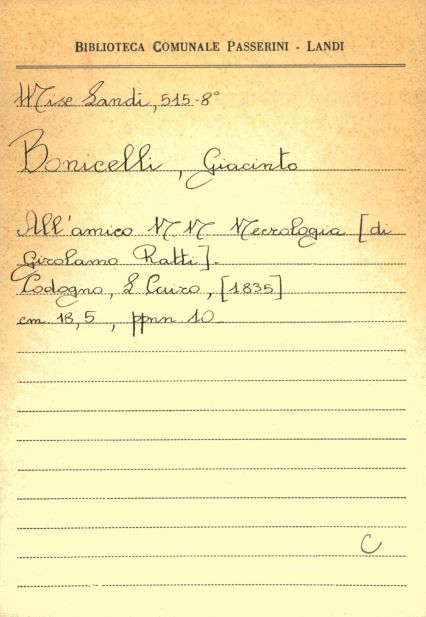 BIBLIOTECA COMUNALE PASSERINI - LANDI
Misc Landi, 515-8°
Bonicelli, Giacinto
All'amico N N Necrologia [di
Girolamo Ratti].
Codogno, L Cairo, [1835]
cm 18,5, ppnn 10
C